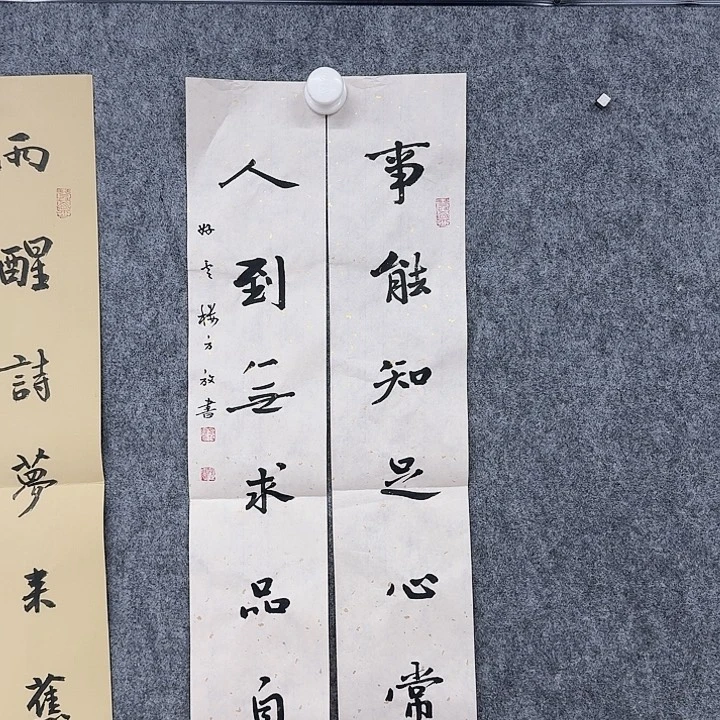 事能知足心常
人到無求品自
好雲樓方放書
雨醒詩夢來蕉